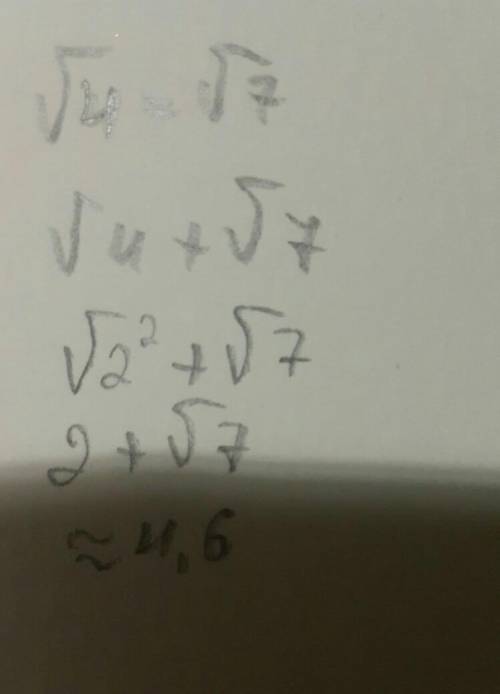 √4 = √7
√4 + √7
√2² + √7
2 + √7
≈ 4,6